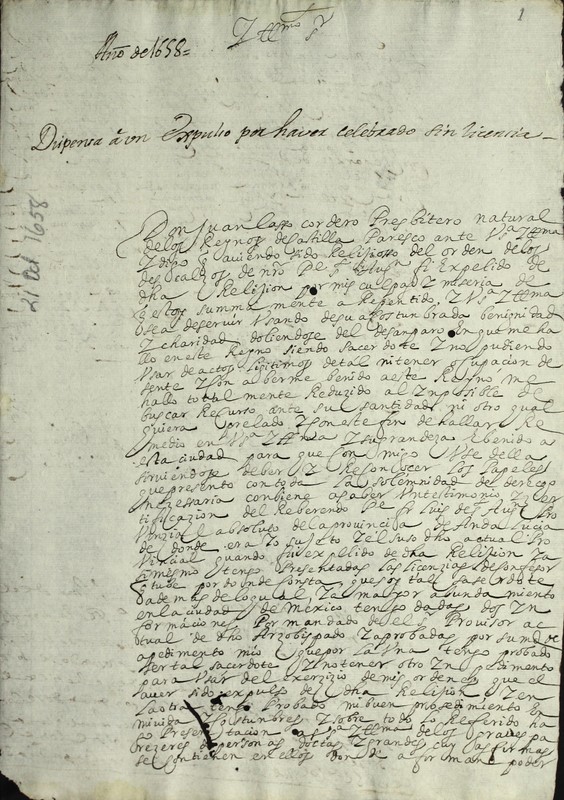 1
Yllmo Sr
Año de 1658=
Dispensa á un Expulso por haver celebrado sin licencia
21 Oct 1658
Don Juan Lasso cordero Presbitero natural
de los Reynos de Castilla Paresco ante Vsa Yllma
Y digo q auiendo sido Relijiosso del orden de los
descalços de nro Pe S. Agusn fi Expelido de
dha Relijion por mis culpas Y miseria de
q estoy summa mente a Repentido, Y Vsa Yllma
a de seruir Vsando de su acostunbrada benignidad
Y charidad doliendose del desanparo en que me ha
llo en este Reyno siendo sacerdote Y no pudiendo
Vsar de actos lijitimos de tal ni tener ocupacion de
sente Y con a berme benido a este Reyno me
hallo total mente Reduzido al Ynposible de
buscar Recurso ante su santidad ni otro qual
quiera prelado Y con este fin de hallar Re
medio en Vsa Yllma Y su grandeza e benido a
esta ciudad para que con migo Vse della
siruiendose de ber Y Reconoscer los papeles
que presento con toda la solemnidad del derecho
nezessaria conbiene a saber Vn testimonio Y zer
tificazion del Reberendo Pe fr Luis de S Agusn Pro
vinzial absoluto de la provincia de Andalucia
de donde era Yo sujeto Y el suso dho actual Pro
vincial quando fui expelido de dha Relijion Ya
simismo tengo Presentadas las licenzias de confesor
q tube por donde consta que soy tal saserdote
ademas de lo qual Ya mayor abundamiento
en la ciudad de Mexico tengo dadas dos Yn
formaciones Por mandado de el Sr Provisor ac
tual de dho Arzobispado Y aprobadas por su md de
a pedimento mio que por la Vna tengo probado
ser tal sacerdote Y no tener otro Ynpedimento
para Vsar del exerzizio de mis ordenes que el
aver sido expulso de dha Relijion Y en
la otra tengo Probado mi buen prosedimiento en
mi vida Y costunbres Y sobre todo lo Referido ha
go Presentacion a Vsa Yllma de los graues pa
rezeres de personas doctas Y grandes cuyas firmas
se contienen en ellos donde a forman poder